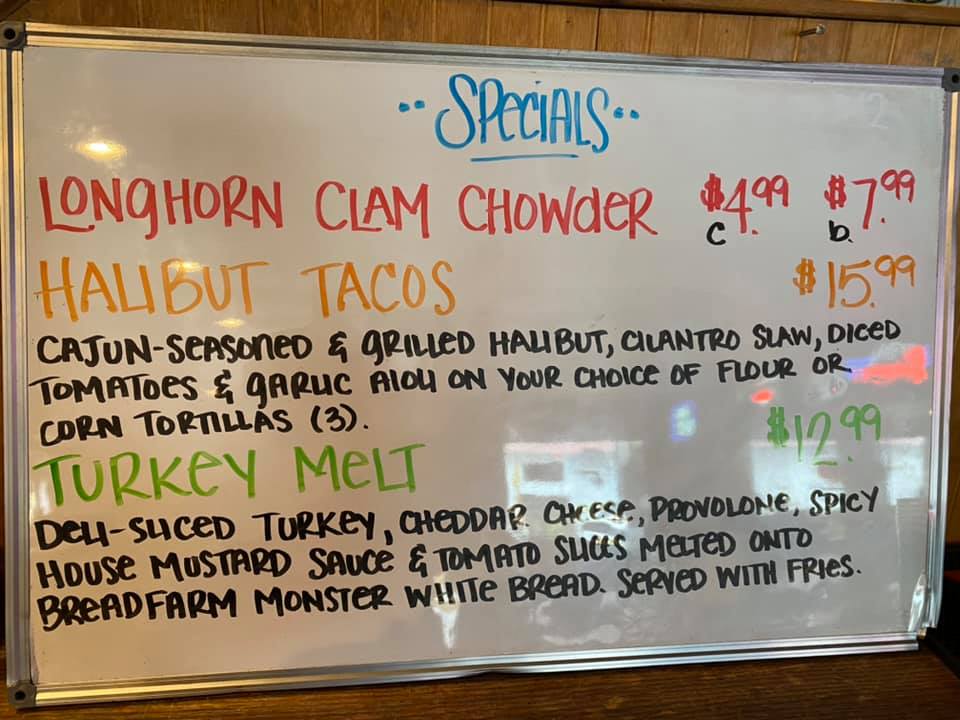 ·· SPECIALS ··
LONGHORN CLAM CHOWDER $4.99 $7.99
c b.
HALIBUT TACOS $15.99
CAJUN-SEASONED & GRILLED HALIBUT, CILANTRO SLAW, DICED
TOMATOES & GARLIC AIOLI ON YOUR CHOICE OF FLOUR OR
CORN TORTILLAS (3).
TURKEY MELT $12.99
DELI-SLICED TURKEY, CHEDDAR CHEESE, PROVOLONE, SPICY
HOUSE MUSTARD SAUCE & TOMATO SLICES MELTED ONTO
BREADFARM MONSTER WHITE BREAD. SERVED WITH FRIES.